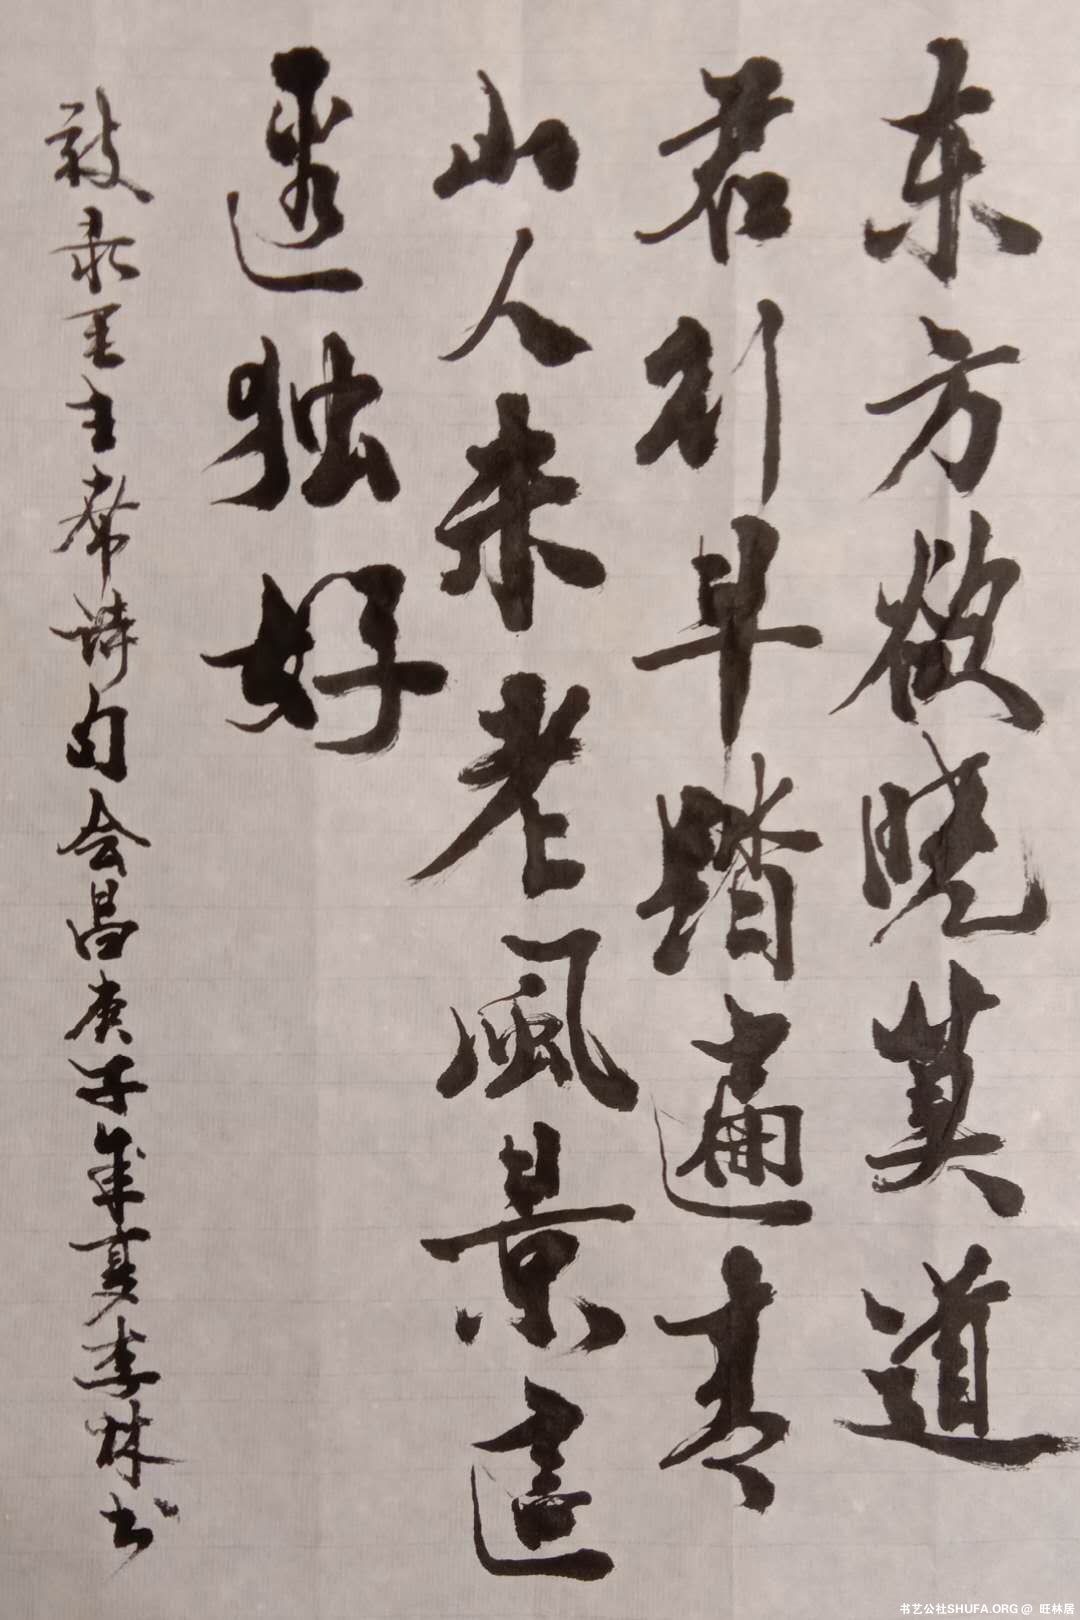 东方欲晓莫道
君行早踏遍青
山人未老風景這
邊独好
敬录毛主席诗句会昌庚子年夏李林书
书艺公社SHUFA.ORG @ 旺林居